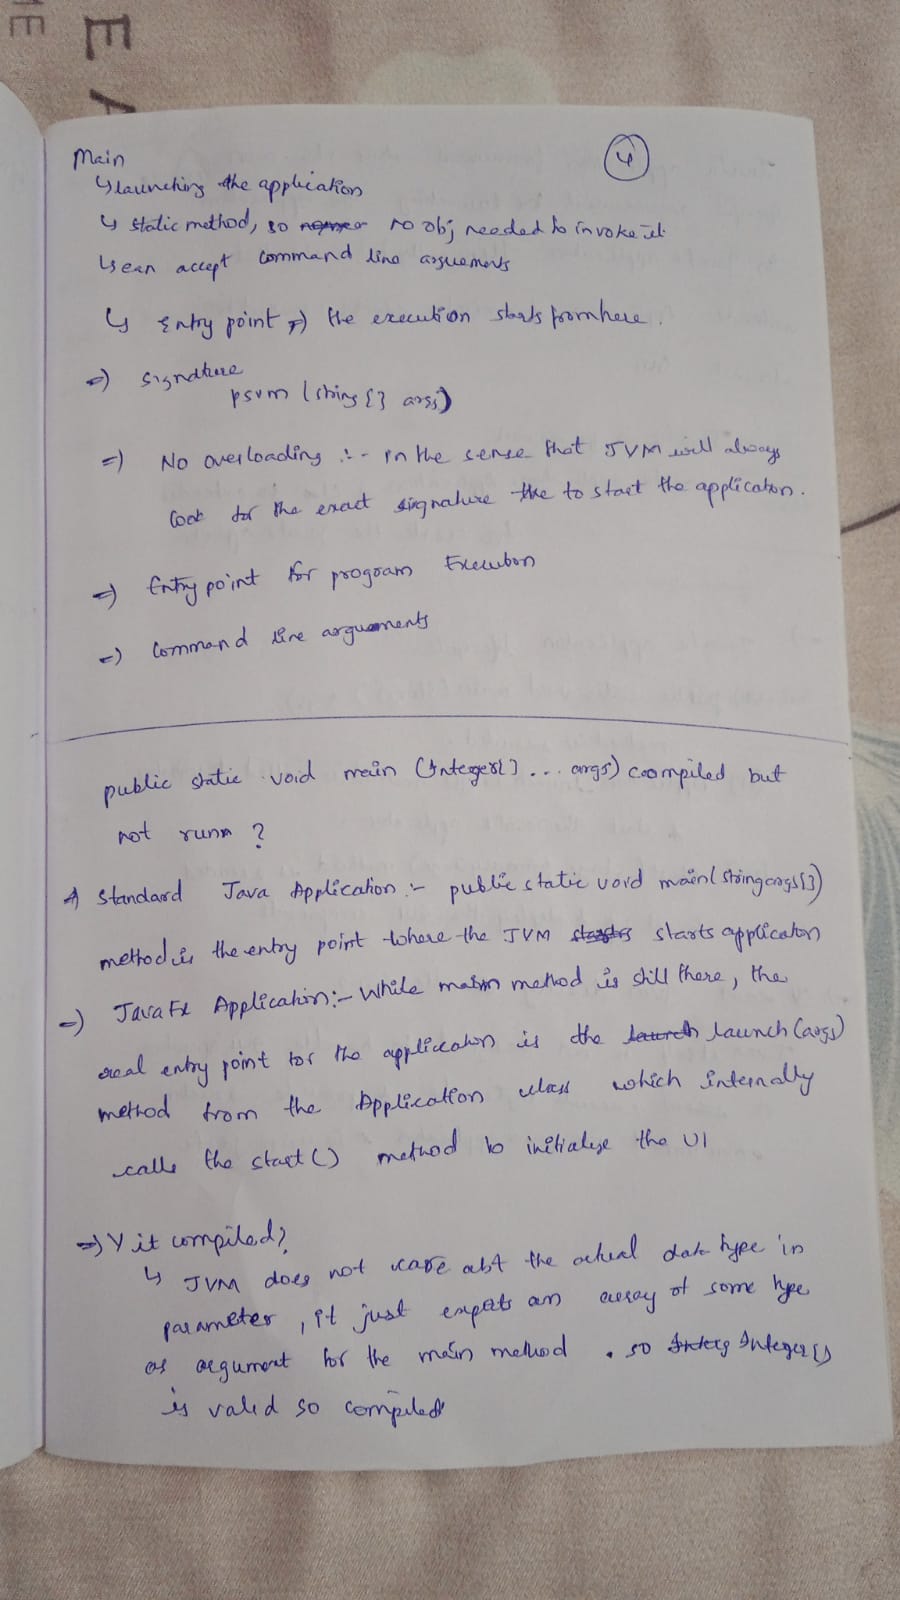 ME
E A
Main
④
↳ launching the application
↳ static method, so no obj needed to invoke it
↳ can accept command line arguements
↳ Entry point => the execution starts from here.
=> signature
psvm (string [] args)
=> No overloading :- in the sense that JVM will always
look for the exact signature to start the application.
=> Entry point for program Execution
=> Command line arguements
public static void main (Integer[] ... args) coompiled but
not runn ?
Standard Java Application :- public static void main(string args[])
method is the entry point where the JVM starts application
=> JavaFx Application:- While main method is still there, the
real entry point for the application is the launch(args)
method from the Application class which internally
calls the start() method to initialize the UI
=> Y it compiled?
↳ JVM does not care abt the actual data type in
parameter, it just expects an array of some type
as argument for the main method . so Integer[]
is valid so compiled